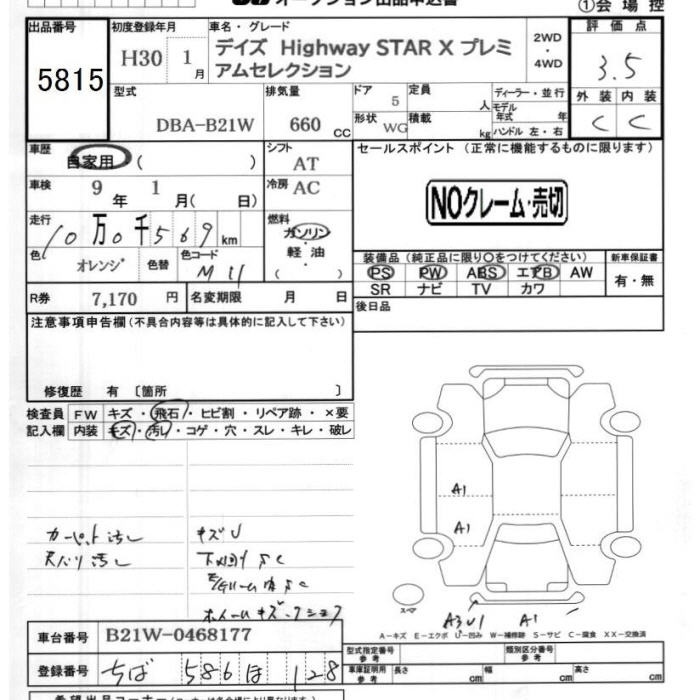 オークション出品申込書
①会場控
出品番号
5815
初度登録年月
H30 1月
車名・グレード
デイズ Highway STAR X プレミ
アムセレクション
2WD
・
4WD
評価点
3.5
外装 内装
C C
型式
DBA-B21W
排気量
660 CC
ドア 5
形状 WG
定員 人
積載 kg
ディーラー・並行
モデル年式 年
ハンドル 左・右
車歴
自家用 ( )
シフト AT
車検 9年 1月( 日)
冷房 AC
走行
10万0千569km
燃料
ガソリン
・
軽油
( )
色 オレンジ 色替 色コード M11
セールスポイント (正常に機能するものに限ります)
NOクレーム・売切
装備品 (純正品に限り○をつけてください)
PS PW ABS エアB AW
SR ナビ TV カワ
新車保証書
有・無
R券 7,170 円 名変期限 月 日
後日品
注意事項申告欄(不具合内容等は具体的に記入して下さい)
修復歴 有 〔箇所 〕
検査員 FW キズ・飛石・ヒビ割・リペア跡・×要
記入欄 内装 キズ・汚レ・コゲ・穴・スレ・キレ・破レ
カーペット汚レ
天バリ汚レ
キズU
下回りSC
ホイールキズ
A1
A1
スペア
A3U1 A1
A-キズ E-エクボ U-凹み W-補修跡 S-サビ C-腐食 XX-交換済
車台番号 B21W-0468177
登録番号 ちば 586 ほ 128
型式指定番号 参考
類別区分番号 参考
車庫証明用 参考 長さ cm 幅 cm 高さ cm